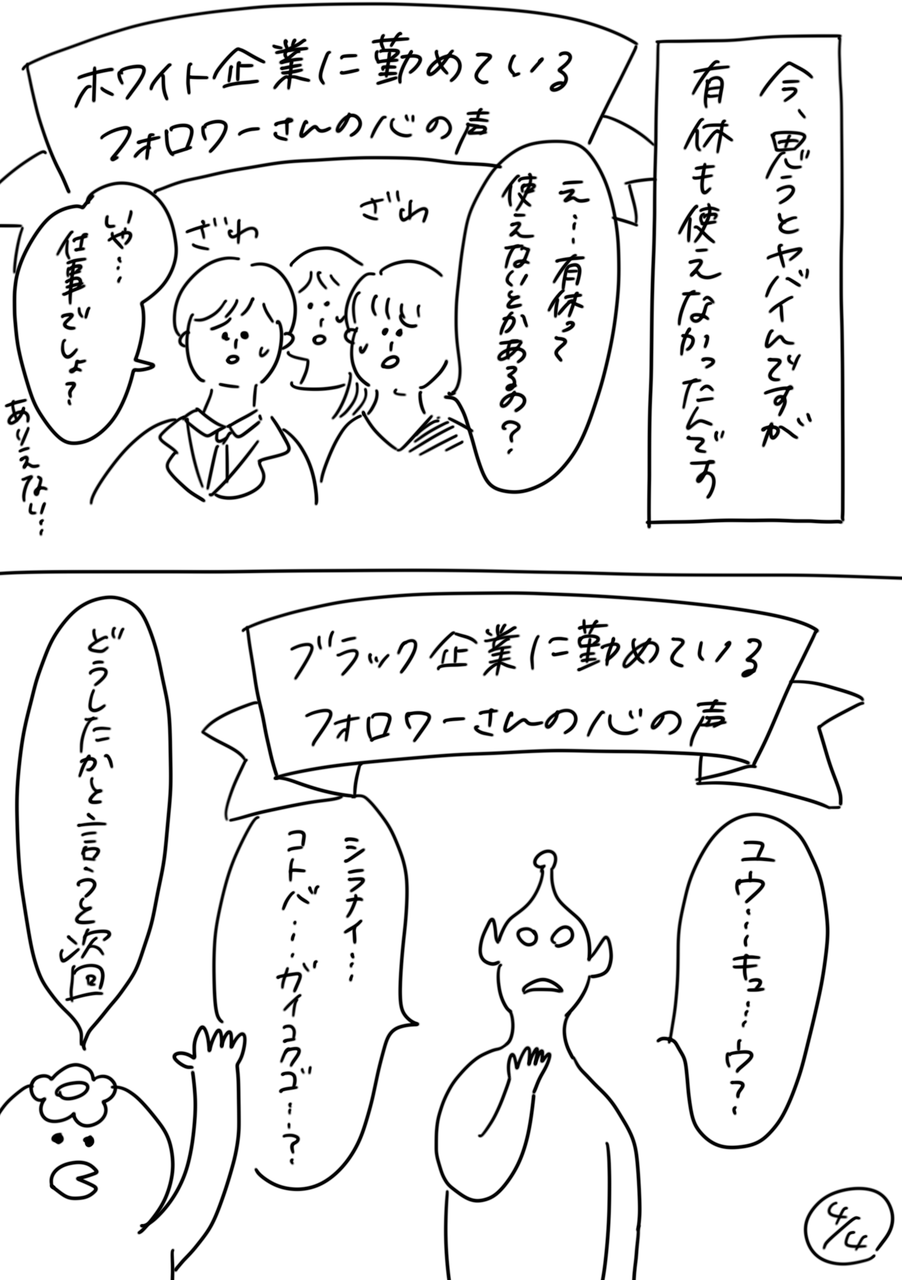 今、思うとヤバイんですが
有休も使えなかったんです
ホワイト企業に勤めている
フォロワーさんの心の声
え…有休って
使えないとかあるの?
ざわ
ざわ
いや…
仕事でしょ?
ありえない…
ブラック企業に勤めている
フォロワーさんの心の声
ユウ…キュ…ウ?
シラナイ…
コトバ…ガイコクゴ…?
どうしたかと言うと次回
4/4